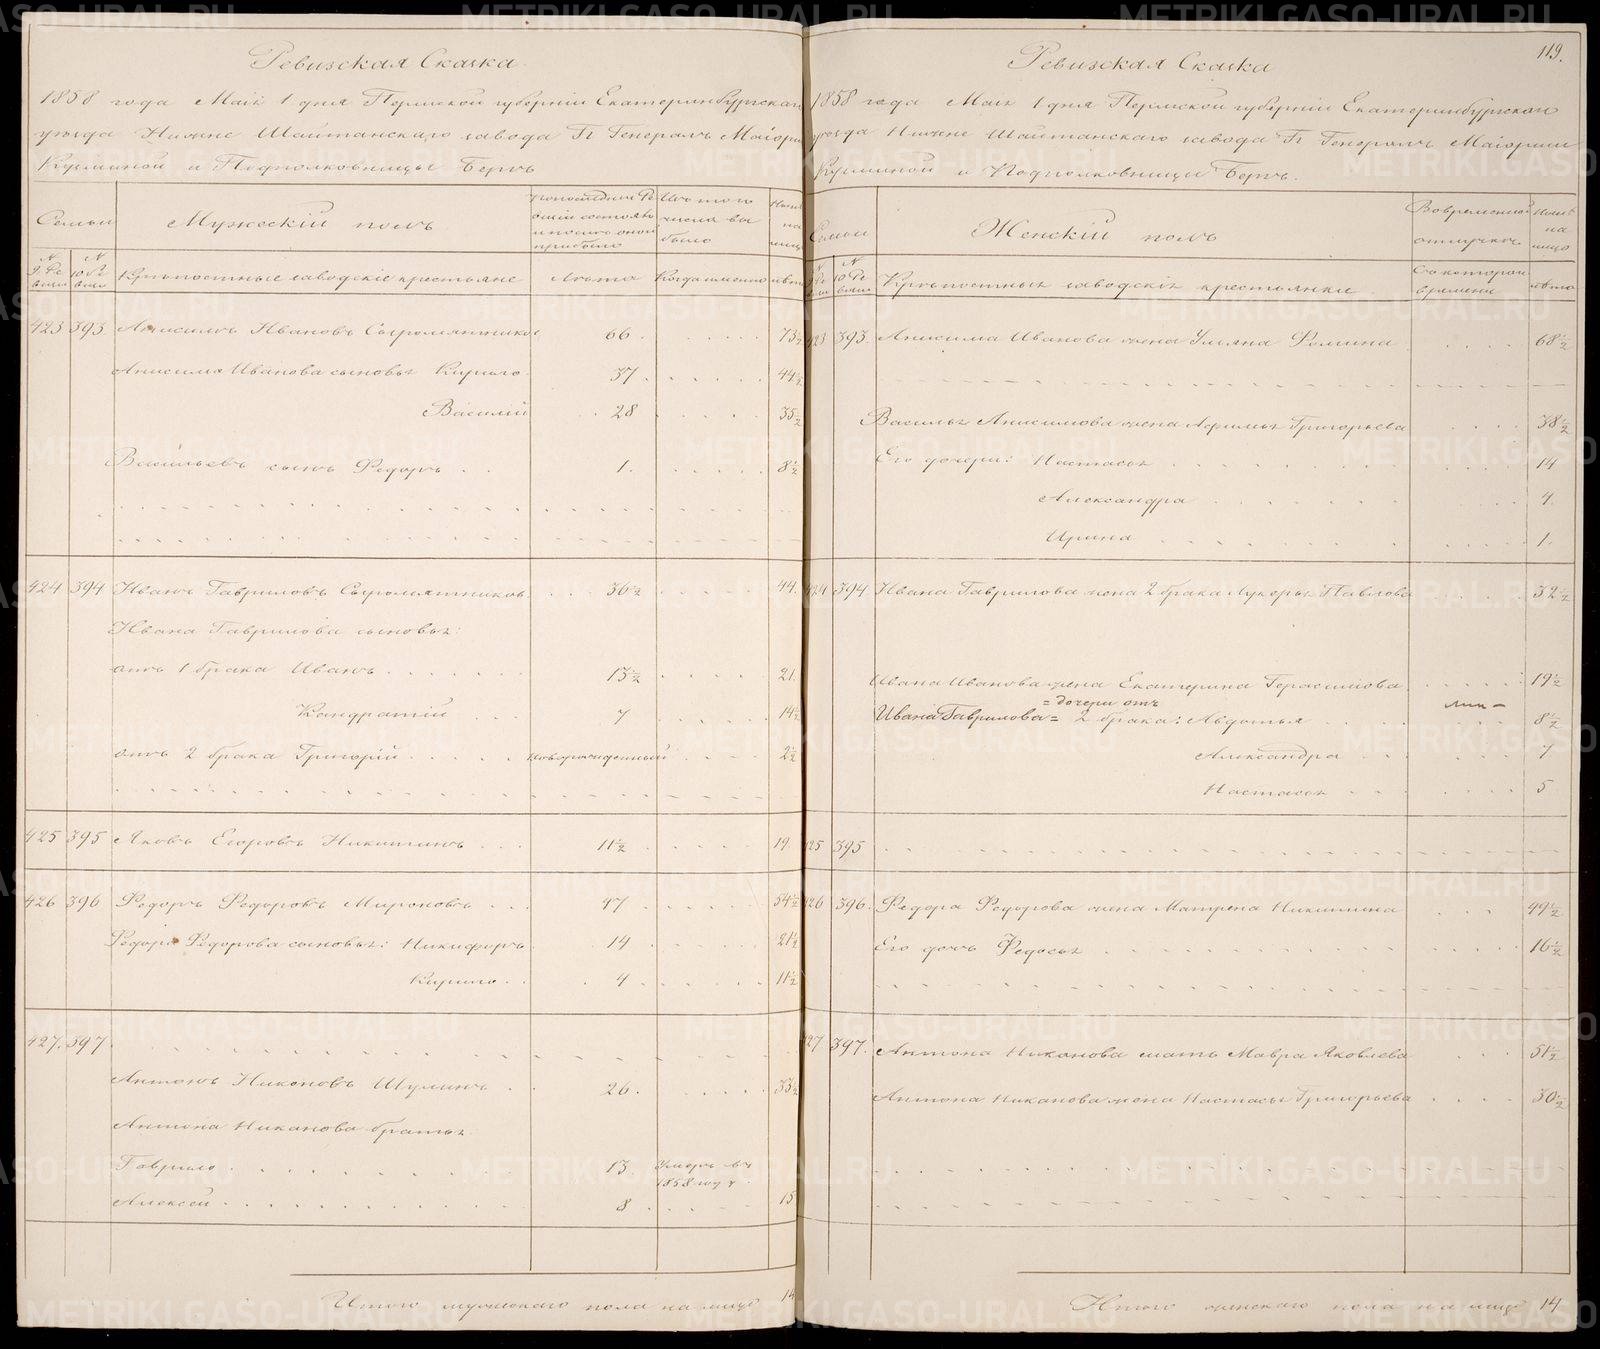 Ревизская Сказка
1858 года Маія 1 дня Пермской губерніи Екатеринбургскаго
уѣзда Нижне Шайтанскаго завода Гг Генералъ Маіорши
Кузминой и Подполковницы Бергъ
Семьи
Мужескій полъ
Изъ того числа выбыло
Нынѣ на лицо
№ 9 Ревизіи
№ 10 Ревизіи
Крѣпостные заводскіе крестьяне
Лѣта
Когда именно
лѣта
423 393 Анисимъ Ивановъ Сыромятниковъ 66 73½
Анисима Иванова сыновья Кирило 37 44½
Василій 28 35½
Васильевъ сынъ Федоръ 1. 8½
424 394 Иванъ Гавриловъ Сыромятниковъ 36½ 44.
Ивана Гаврилова сыновья:
отъ 1 брака Иванъ 13½ 21.
Кандратій 7 14½
отъ 2 брака Григорій новорожденный 2½
425 395 Яковъ Егоровъ Никитинъ 11½ 19.
426 396 Федоръ Федоровъ Мироновъ 47 54½
Федора Федорова сыновья: Никифоръ 14 21½
Кирило 4 11½
427. 397
Антонъ Никоновъ Шулинъ 26. 33½
Антона Никанова братья:
Гаврило 13. Умеръ въ
1858 году
Алексей 8 15
Итого мужескаго пола на лицо 14
119.
Ревизская Сказка
1858 года Маія 1 дня Пермской губерніи Екатеринбургскаго
уѣзда Нижне Шайтанскаго завода Гг Генералъ Маіорши
Кузминой и Подполковницы Бергъ.
Семьи
Женскій полъ
Во временной отлучкѣ
Нынѣ на лицо
№ 9 Ревизіи
№ 10 Ревизіи
Крѣпостныя заводскія крестьянки
Съ котораго времени
лѣта
423 393. Анисима Иванова жена Ульяна Фомина 68½
Василья Анисимова жена Афимья Григорьева 38½
Его дочери: Настасья 14
Александра 4.
Ирина 1.
424 394 Ивана Гаврилова жена 2 брака Лукерья Павлова 32½
Ивана Иванова жена Екатерина Герасимова 19½
= дочери отъ
Ивана Гаврилова= 2 брака: Авдотья 8½
Александра 7
Настасья 5
425 395
426 396. Федора Федорова жена Матрена Никитина 49½
Его дочь Федосья 16½
427 397. Антона Никанова мать Мавра Яковлева 51½
Антона Никанова жена Настасья Григорьева 30½
Итого женскаго пола на лицо 14
METRIKI.GASO-URAL.RU